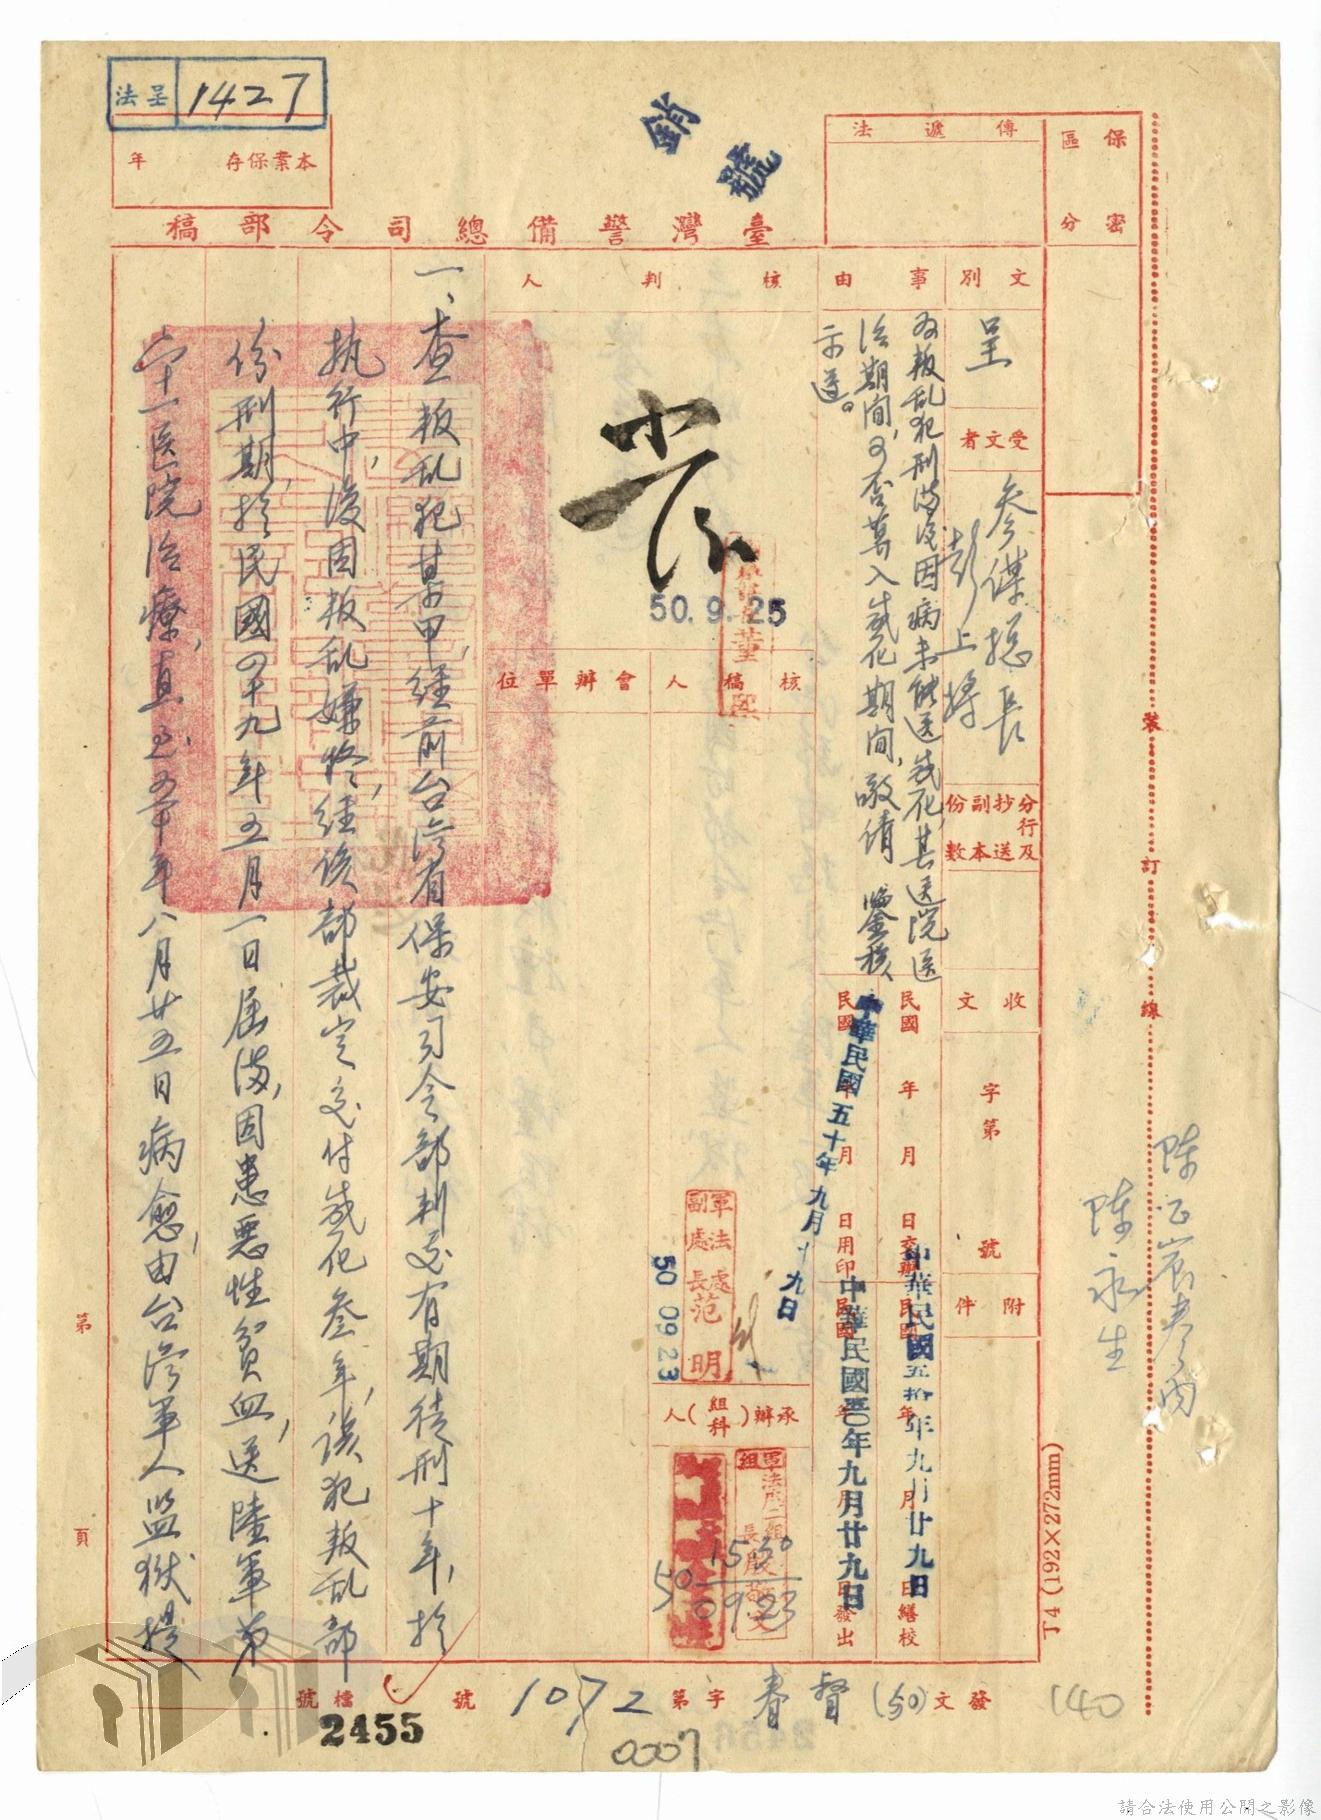 保密
區分
傳遞法
銷號
法呈 1427
本案保存 年
臺灣警備總司令部稿
文別
呈
受文者
參謀總長
彭上將
分行及抄送副本份數
收文
字第
號
附件
事由
為叛乱犯刑滿後因病未能送感化,其送院医
治期間,可否算入感化期間,敬請 鑒核
示遵。
民國 年 月 日交辦
中華民國五十年九月十九日
民國 年 月 日用印
中華民國五十年九月廿九日
民國 年 月 日繕校
中華民國五〇年九月廿九日
民國 年 月 日發出
核判人
50.9.25
核稿人
會辦單位
軍法處副處長范明
50 09 23
承辦(組科)人
1530
50 0923
一、查叛乱犯某甲,經前台湾省保安司令部判处有期徒刑十年,於
执行中,復因叛乱嫌疑,経该部裁定交付感化叁年,该犯叛乱部
份刑期,於民國四十九年五月一日屆滿,因患惡性貧血,送陸軍第
六十一医院治療,直至五十年八月廿五日病愈,由台湾軍人监狱提
裝
訂
線
陈永生
T4 (192×272mm)
第
頁
發文(50)督春字第1072號
檔號
2455
0007
140
請合法使用公開之影像